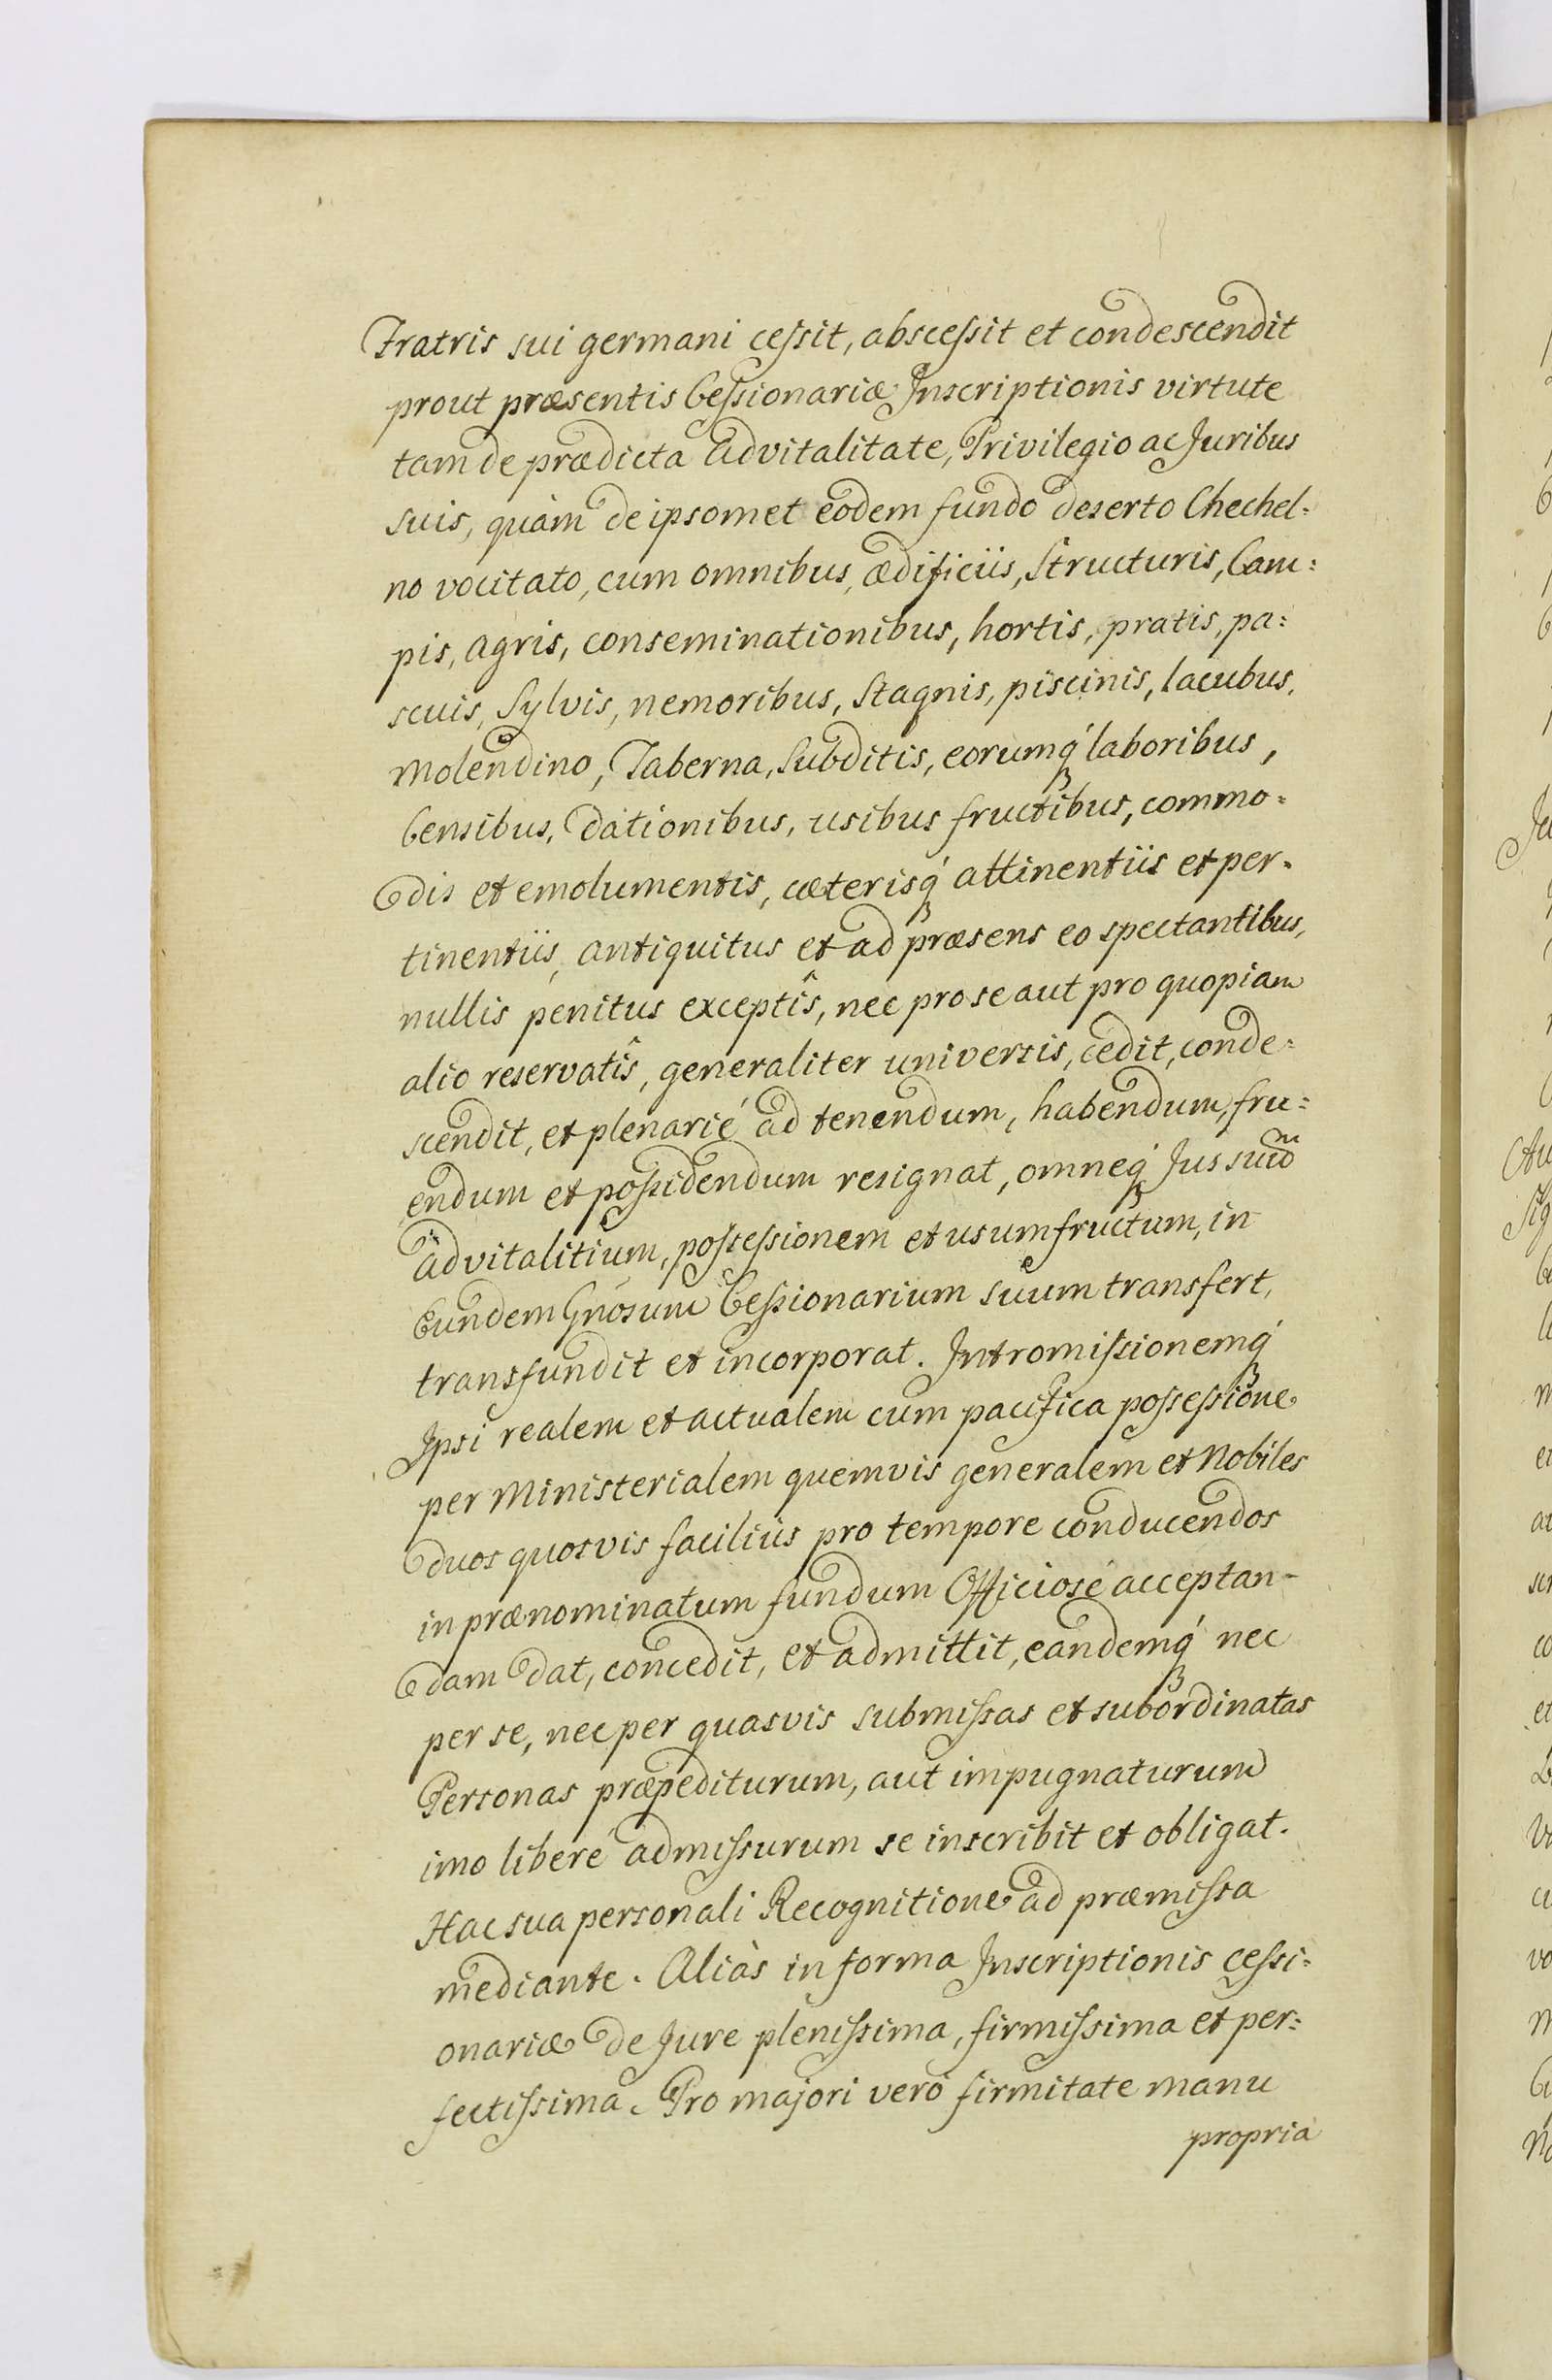 Fratris sui germani cessit, abscessit et condescendit
prout præsentis Cessionariæ Inscriptionis virtute
tam de prædicta Advitalitate, Privilegio ac Juribus
suis, quàm de ipsomet eodem fundo deserto Chechel=
no vocitato, cum omnibus, ædificiis, Structuris, Cam=
pis, agris, conseminationibus, hortis, pratis, pa=
scuis, Sylvis, nemoribus, Stagnis, piscinis, lacubus,
Molendino, Taberna, Subditis, eorumq́ꝫ laboribus,
Censibus, dationibus, usibus fructibus, commo=
dis et emolumentis, cæterisq́ꝫ attinentiis et per=
tinentiis, antiquitus et ad præsens eo spectantibus,
nullis penitus exceptîs, nec pro se aut pro quopiam
alio reservatîs, generaliter universis, cedit, conde=
scendit, et plenarié ad tenendum, habendum, fru=
endum et possidendum resignat, omneq́ꝫ Jus suũ
advitalitium, possessionem et usumfructum, in
Eundem Gnosum Cessionarium suum transfert,
transfundit et incorporat. Intromissionemq́ꝫ
Ipsi realem et actualem cum pacifica possessione
per Ministerialem quemvis generalem et Nobiles
duos quosvis faciliùs pro tempore conducendos
in prænominatum fundum Officiosé acceptan-
dam dat, concedit, et admittit, eandemq́ꝫ nec
per se, nec per quasvis submissas et subordinatas
Personas præpediturum, aut impugnaturum
imo liberé admissurum se inscribit et obligat.
Hac sua personali Recognitione ad præmissa
mediante. Aliàs in forma Inscriptionis cessi=
onariæ de Jure plenissima, firmissima et per=
fectissima. Pro majori veró firmitate manu
propria